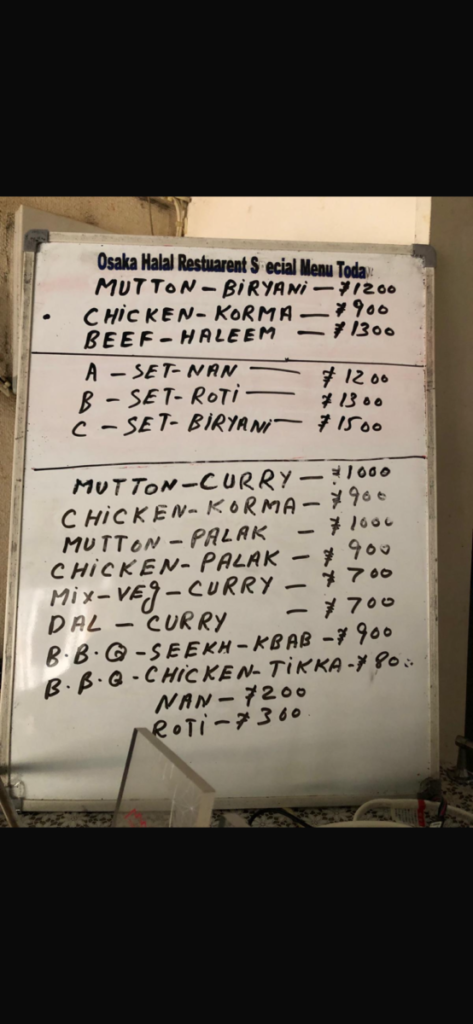 Osaka Halal Restuarent S ecial Menu Toda
MUTTON - BIRYANI - ¥1200
• CHICKEN - KORMA - ¥900
BEEF - HALEEM - ¥1300
A - SET - NAN - ¥1200
B - SET - ROTI - ¥1300
C - SET - BIRYANI - ¥1500
MUTTON - CURRY - ¥1000
CHICKEN - KORMA - ¥900
MUTTON - PALAK - ¥1000
CHICKEN - PALAK - ¥900
Mix - VEg - CURRY - ¥700
DAL - CURRY - ¥700
B.B.Q - SEEKH - KBAB - ¥900
B.B.Q - CHICKEN - TIKKA - ¥80
NAN - ¥200
ROTI - ¥300